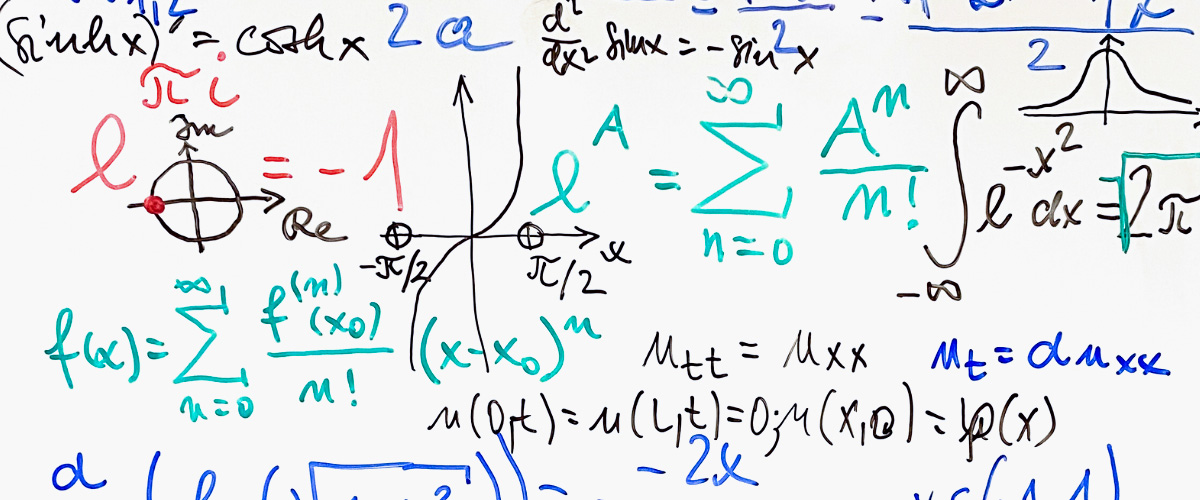 (sinh x)' = cosh x
2 a
d²/dx² sin x = -sin x
2
2
e^{πi} = -1
Im
Re
-π/2
π/2
x
e^A = ∑_{n=0}^{∞} A^n/n!
∫_{-∞}^{∞} e^{-x²} dx = √2π
f(x) = ∑_{n=0}^{∞} f^{(n)}(x₀)/n! (x-x₀)^n
u_{tt} = u_{xx}
u_t = α u_{xx}
u(0,t) = u(L,t) = 0; u(x,0) = φ(x)
d
-2x